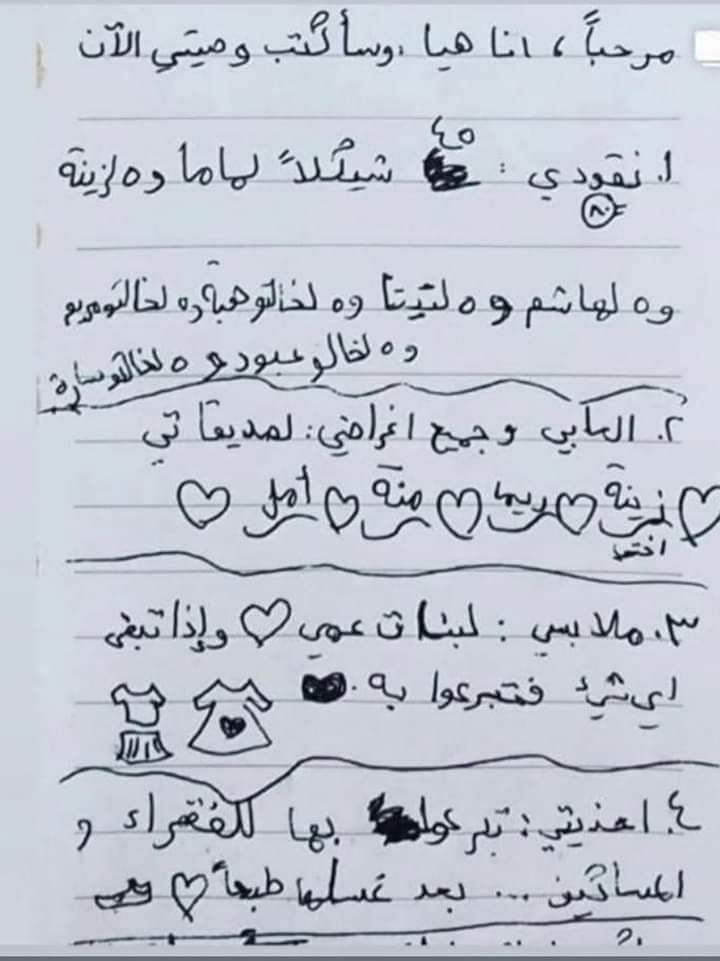 مرحباً، انا هيا، وسأكتب وصيتي الآن
٤٥
١. نقودي: شيكلاً لماما و٥ لزينة
٨٠
و٥ لهاشم و٥ لتيتا و٥ لخالتو هبة و٥ لخالتو مريم
و٥ لخالو عبود و ٥ لخالتو سارة
٢. العابي وجميع اغراضي: لصديقاتي
زينة ريما منة أمل
اختي
٣. ملابسي: لبنات عمي وإذا تبقى
اي شيء فتبرعوا به.
٤. احذيتي: تبرعوا بها للفقراء و
المساكين ... بعد غسلها طبعاً